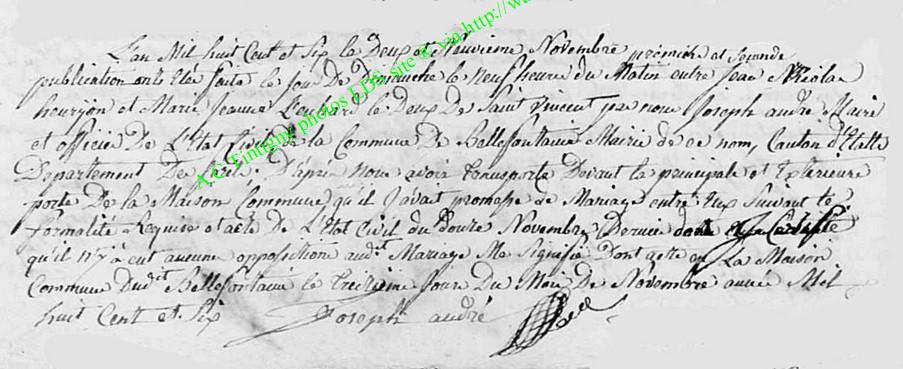 L'an Mil huit Cent et Six le Deux et Neuvieme Novembre premiere et Seconde
publication ont Eté faite le jour De Dimanche le neuf heure du Matin entre Jean Nicolas
et Marie Jeanne Deux De Saint Vincent par nous Joseph andré Maire
et officier De L'Etat Civil de la Commune De Bellefontaine Mairie de ce nom, Canton d'Etalle
Departement De D'après Nous avoir transporté Devant la principale et Exterieure
porte De la Maison Commune qu'il y avait promesse De Mariage entre Eux Suivant le
formalité Requise et acte De L'Etat Civil du Douze Novembre Dernier dont
qu'il n'y a eut aucune opposition audit Mariage Me Signifié Dont acte en La Maison
Commune Dudit Bellefontaine le treizieme Jour Du Mois De Novembre année Mil
huit Cent et Six Joseph andré
A.G. Tintigny photos J.D. site © via http://wa